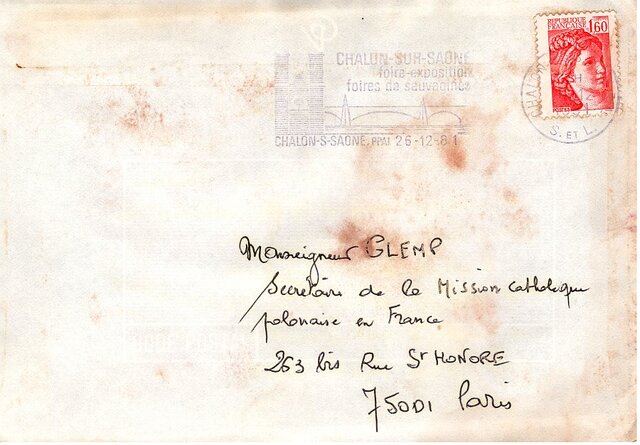 REPUBLIQUE
FRANCAISE
1,60
CHALON-SUR-SAÔNE
foire-exposition
foires de sauvagines
CHALON-S-SAONE. PPAL 26-12-81
S. ET L.
Monseigneur GLEMP
Secrétaire de la Mission catholique
polonaise en France
263 bis Rue St HONORE
75001 Paris